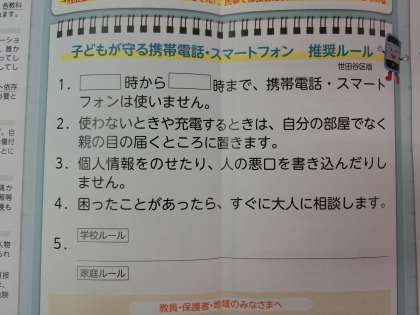 子どもが守る携帯電話・スマートフォン 推奨ルール
世田谷区版
1. 時から 時まで、携帯電話・スマート
フォンは使いません。
2. 使わないときや充電するときは、自分の部屋でなく
親の目の届くところに置きます。
3. 個人情報をのせたり、人の悪口を書き込んだりし
ません。
4. 困ったことがあったら、すぐに大人に相談します。
5.
学校ルール
家庭ルール
教員・保護者・地域のみなさまへ